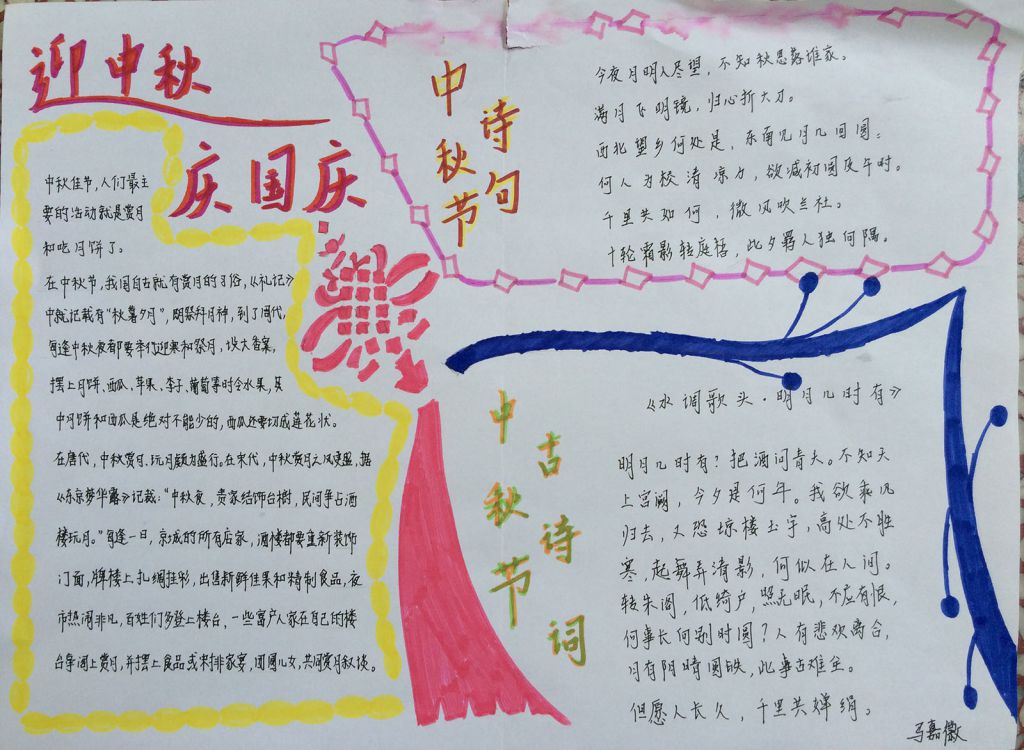 迎中秋
庆国庆
中秋佳节，人们最主
要的活动就是赏月
和吃月饼了。
在中秋节，我国自古就有赏月的习俗，《礼记》
中就记载有“秋暮夕月”，即祭拜月神，到了周代，
每逢中秋夜都要举行迎寒和祭月，设大香案，
摆上月饼、西瓜、苹果、李子、葡萄等时令水果，其
中月饼和西瓜是绝对不能少的，西瓜还要切成莲花状。
在唐代，中秋赏月、玩月颇为盛行。在宋代，中秋赏月之风更盛，据
《东京梦华露》记载：“中秋夜，贵家结饰台榭，民间争占酒
楼玩月。”每逢一日，京城的所有店家，酒楼都要重新装饰
门面，牌楼上扎绸挂彩，出售新鲜佳果和精制食品，夜
市热闹非凡，百姓们多登上楼台，一些富户人家在自己的楼
台亭阁上赏月，并摆上食品或安排家宴，团圆儿女，共同赏月叙谈。
中秋节
诗句
今夜月明人尽望，不知秋思落谁家。
满月飞明镜，归心折大刀。
西北望乡何处是，东南见月几回圆。
何人为校清凉力，欲减初圆及午时。
千里共如何，微风吹兰杜。
十轮霜影转庭梧，此夕羁人独向隅。
中秋节
古诗词
《水调歌头·明月几时有》
明月几时有？把酒问青天。不知天
上宫阙，今夕是何年。我欲乘风
归去，又恐琼楼玉宇，高处不胜
寒，起舞弄清影，何似在人间。
转朱阁，低绮户，照无眠，不应有恨，
何事长向别时圆？人有悲欢离合，
月有阴晴圆缺，此事古难全。
但愿人长久，千里共婵娟。
马嘉徽